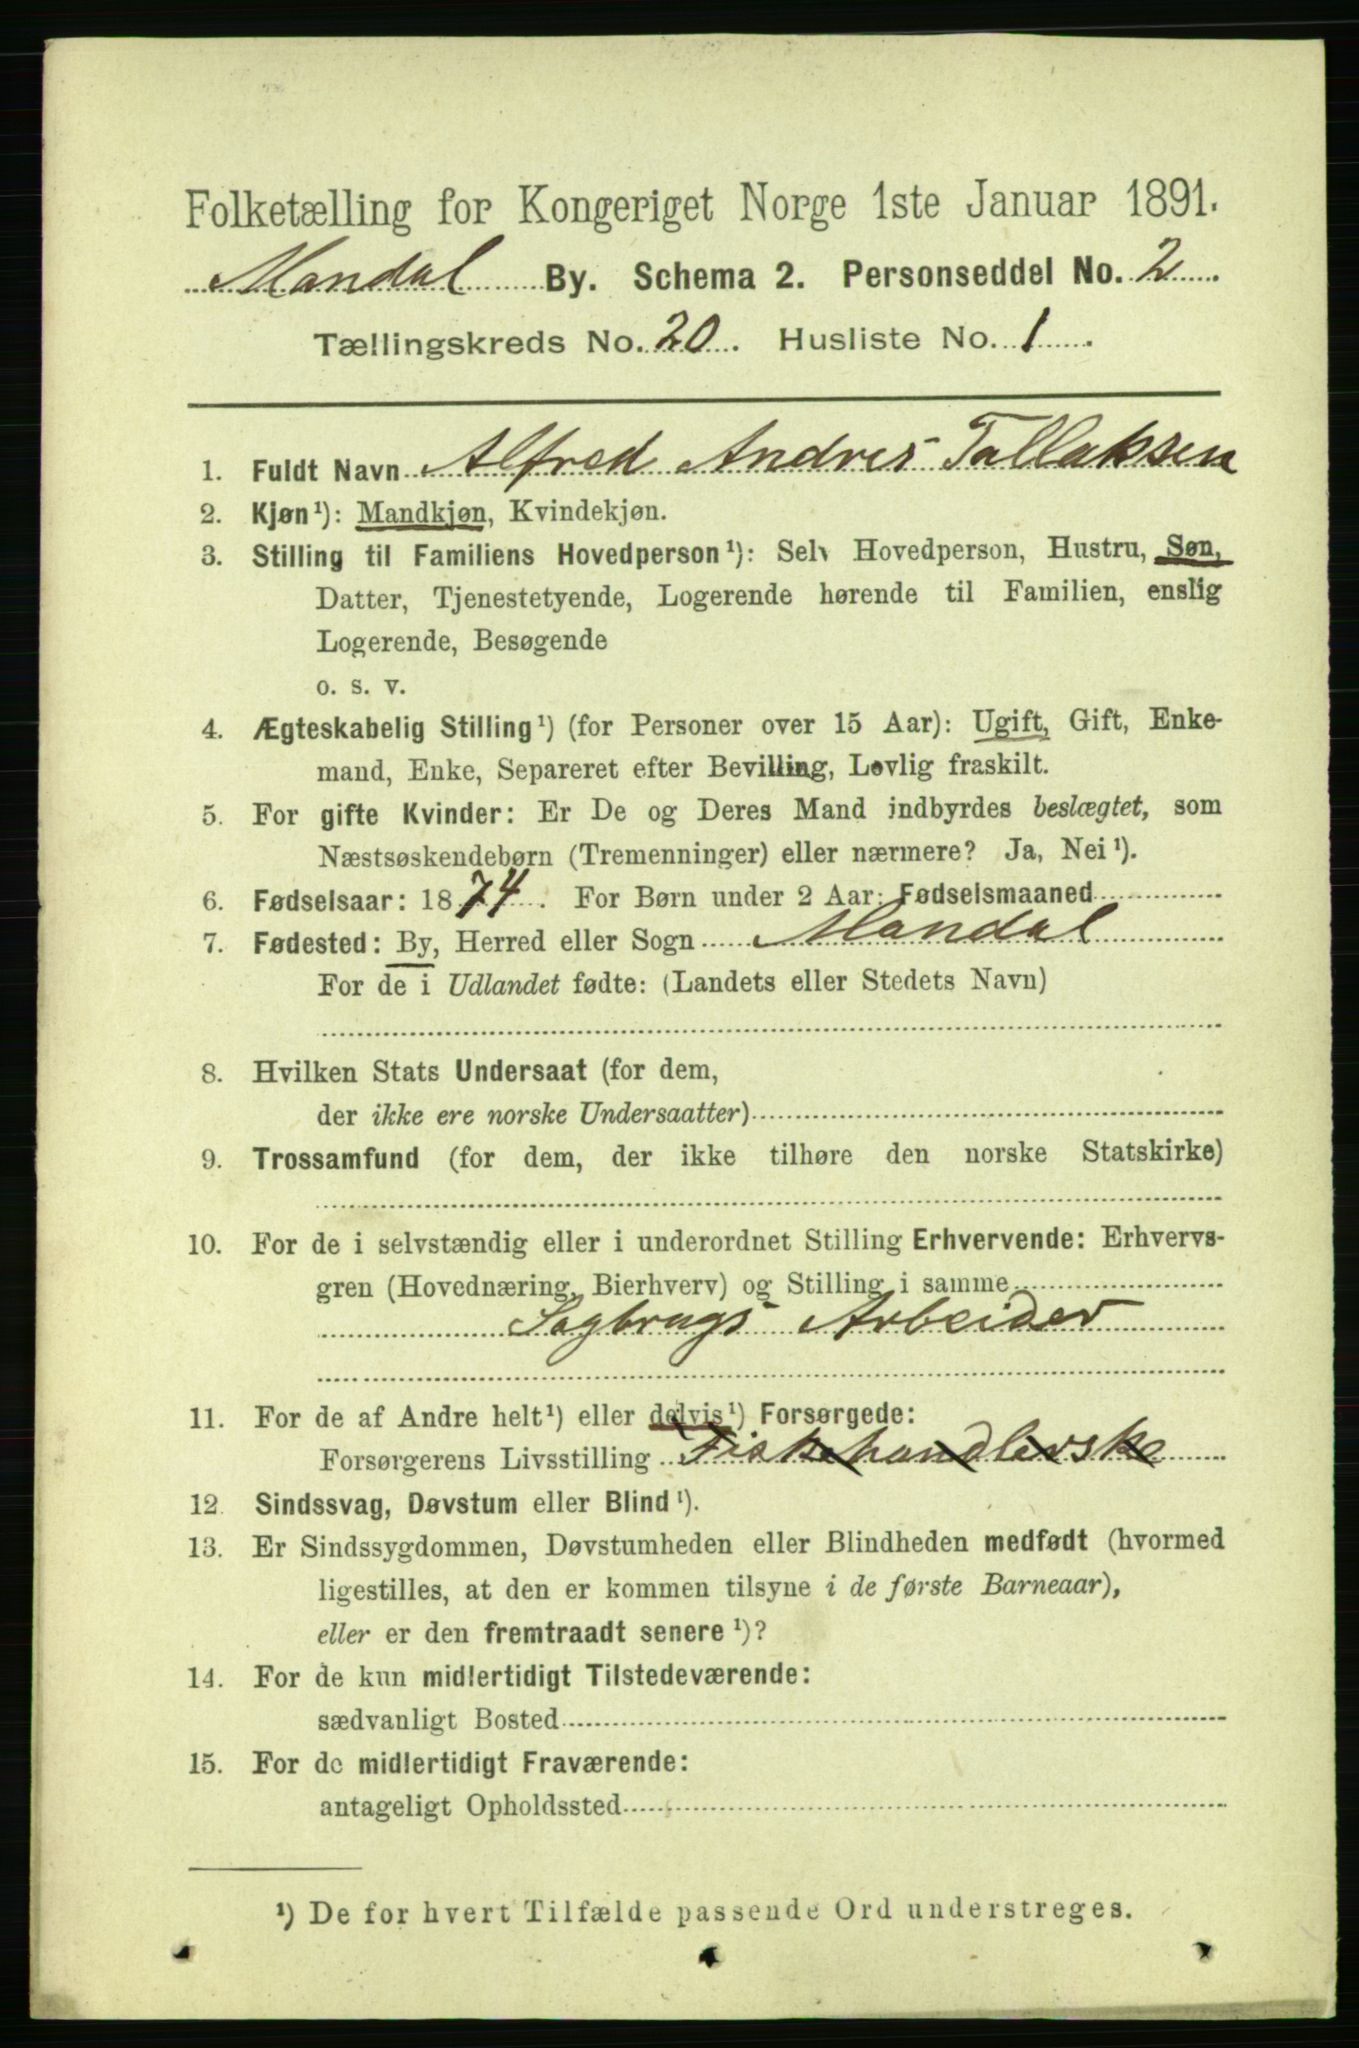 Folketælling for Kongeriget Norge 1ste Januar 1891.
Mandal By. Schema 2. Personseddel No. 2
Tællingskreds No. 20. Husliste No. 1.
1. Fuldt Navn Alfred Andres Tallaksen
2. Kjøn¹): Mandkjøn, Kvindekjøn.
3. Stilling til Familiens Hovedperson¹): Selv Hovedperson, Hustru, Søn,
Datter, Tjenestetyende, Logerende hørende til Familien, enslig
Logerende, Besøgende
o. s. v.
4. Ægteskabelig Stilling¹) (for Personer over 15 Aar): Ugift, Gift, Enke-
mand, Enke, Separeret efter Bevilling, Lovlig fraskilt.
5. For gifte Kvinder: Er De og Deres Mand indbyrdes beslægtet, som
Næstsøskendebørn (Tremenninger) eller nærmere? Ja, Nei¹).
6. Fødselsaar: 1874. For Børn under 2 Aar: Fødselsmaaned
7. Fødested: By, Herred eller Sogn Mandal
For de i Udlandet fødte: (Landets eller Stedets Navn)
8. Hvilken Stats Undersaat (for dem,
der ikke ere norske Undersaatter)
9. Trossamfund (for dem, der ikke tilhøre den norske Statskirke)
10. For de i selvstændig eller i underordnet Stilling Erhvervende: Erhvervs-
gren (Hovednæring, Bierhverv) og Stilling i samme
Sagbrugs Arbeider
11. For de af Andre helt¹) eller delvis¹) Forsørgede:
Forsørgerens Livsstilling Fiskehandlerske
12. Sindssvag, Døvstum eller Blind¹).
13. Er Sindssygdommen, Døvstumheden eller Blindheden medfødt (hvormed
ligestilles, at den er kommen tilsyne i de første Barneaar),
eller er den fremtraadt senere¹)?
14. For de kun midlertidigt Tilstedeværende:
sædvanligt Bosted
15. For de midlertidigt Fraværende:
antageligt Opholdssted
¹) De for hvert Tilfælde passende Ord understreges.